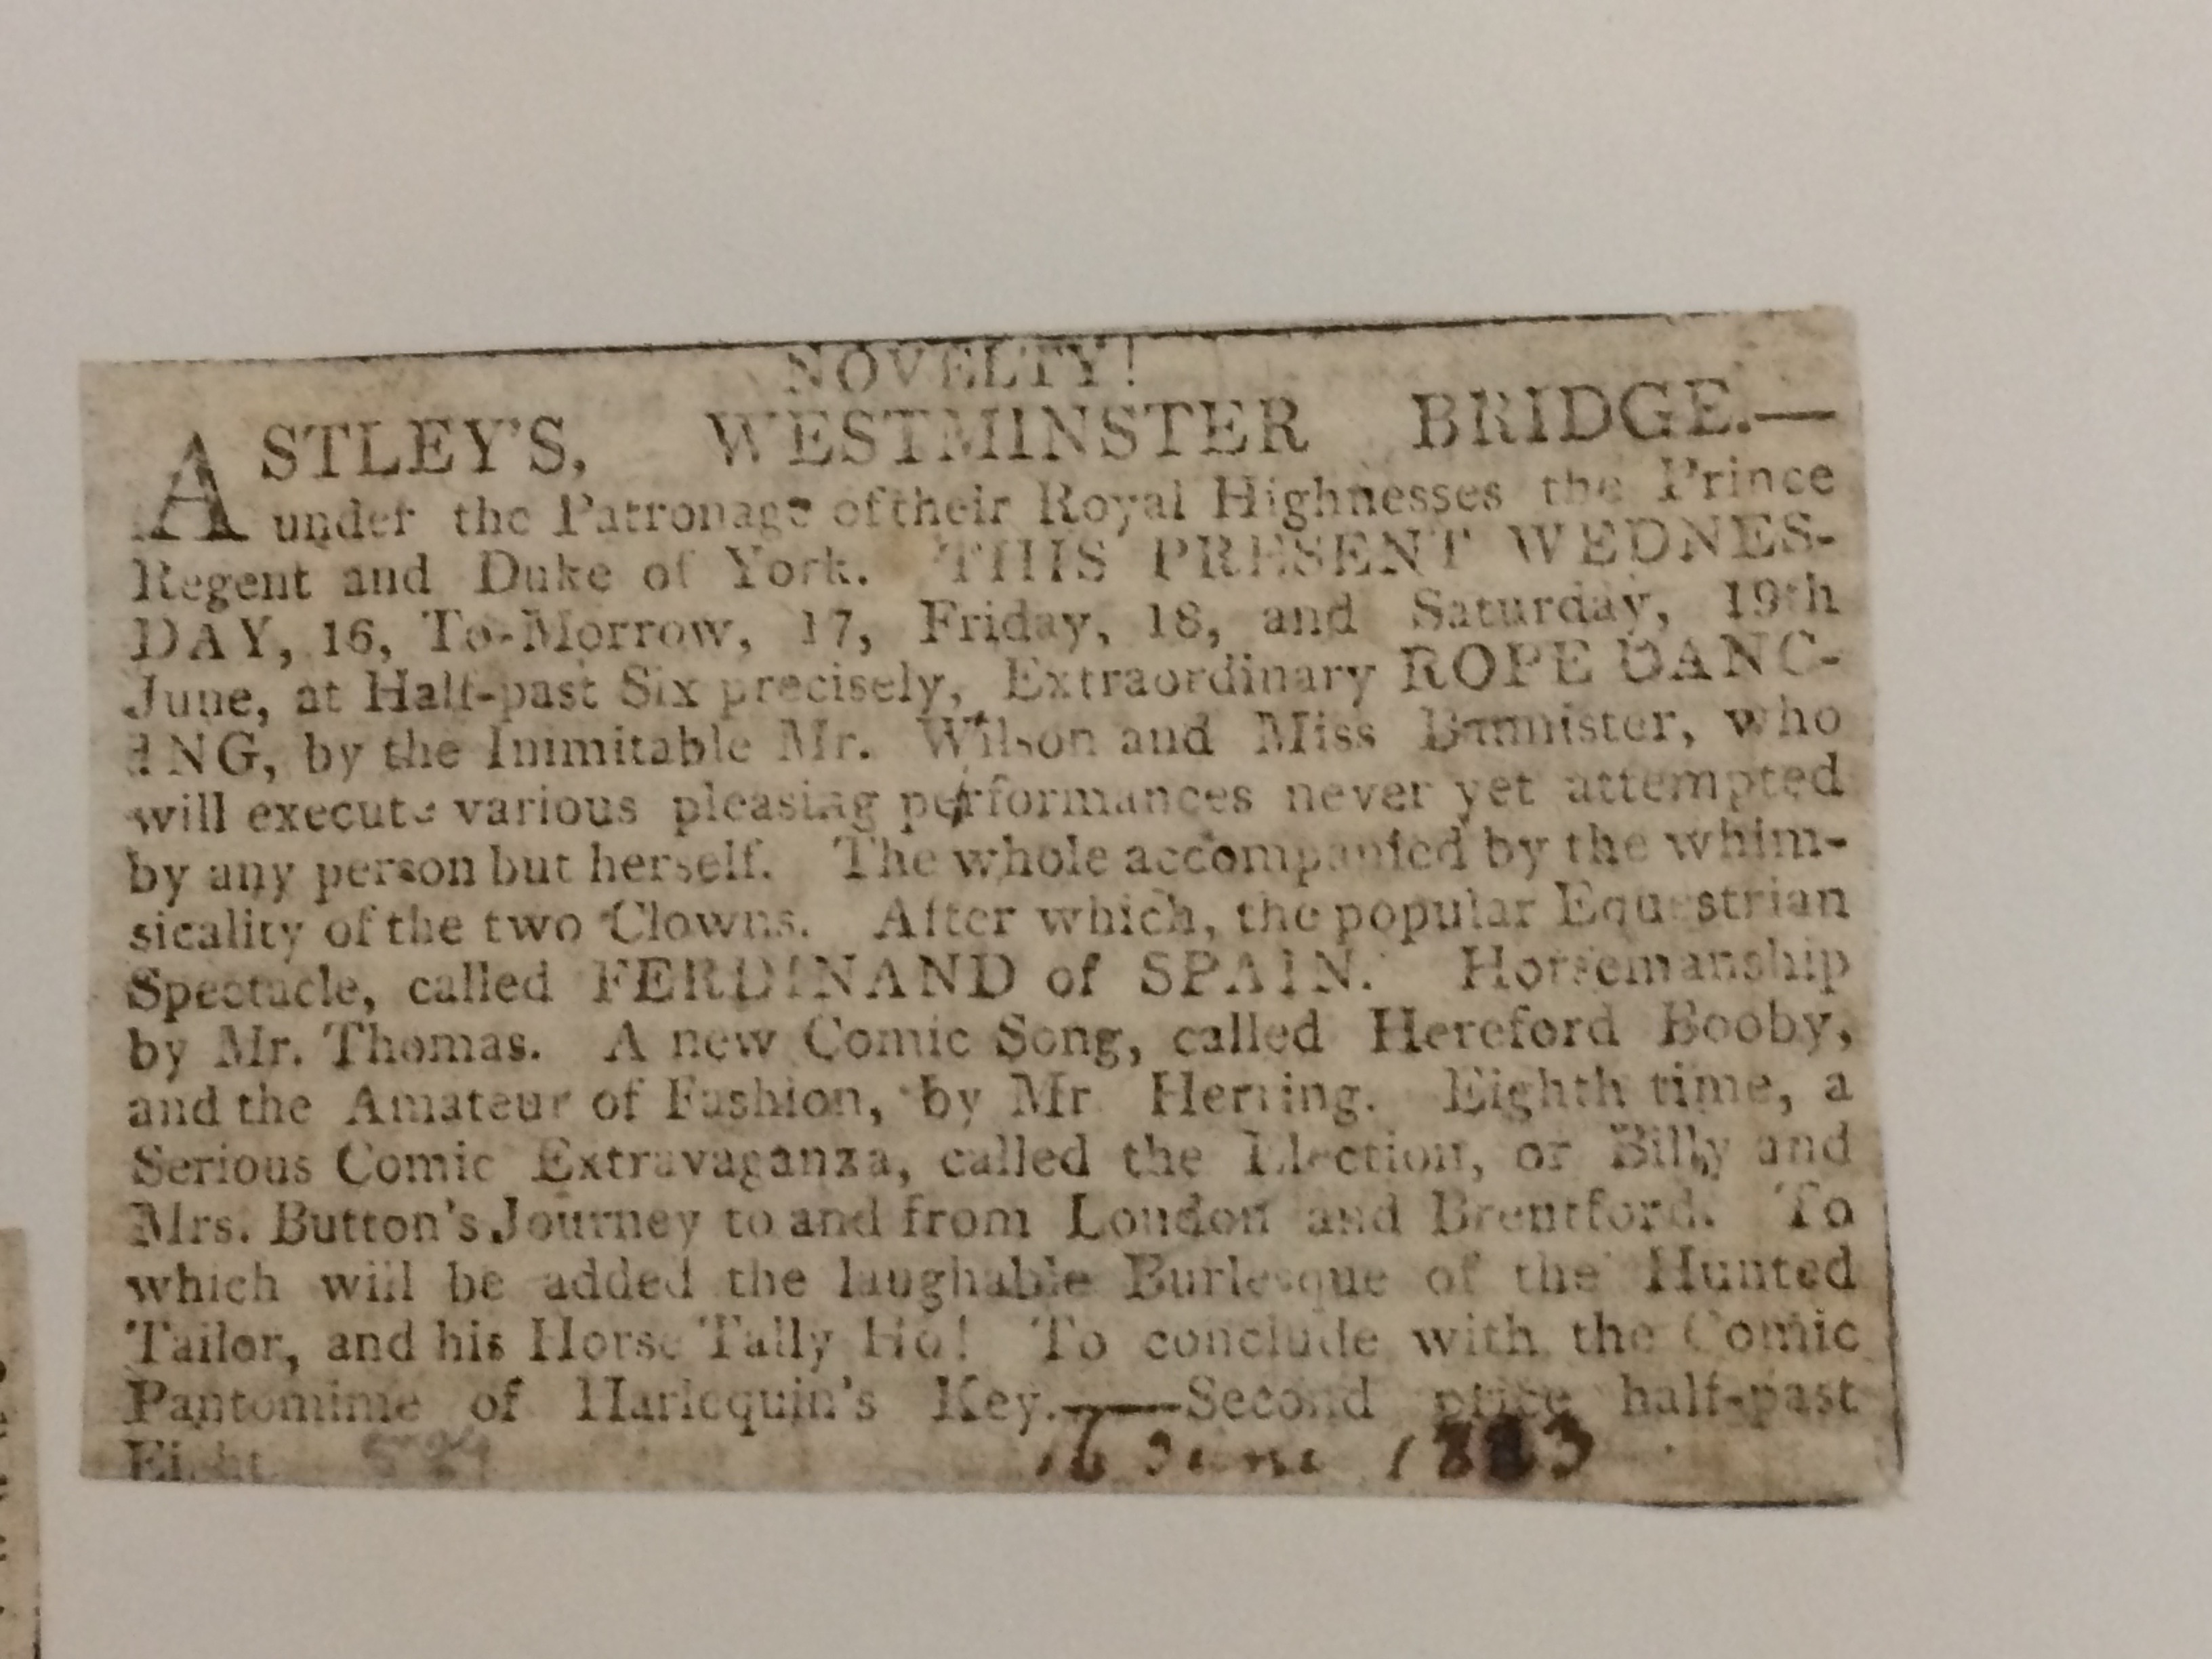 NOVELTY!
ASTLEY'S, WESTMINSTER BRIDGE.—
under the Patronage of their Royal Highnesses the Prince
Regent and Duke of York. THIS PRESENT WEDNES-
DAY, 16, To-Morrow, 17, Friday, 18, and Saturday, 19th
June, at Half-past Six precisely, Extraordinary ROPE DANC-
ING, by the Inimitable Mr. Wilson and Miss Bannister, who
will execute various pleasing performances never yet attempted
by any person but herself. The whole accompanied by the whim-
sicality of the two Clowns. After which, the popular Equestrian
Spectacle, called FERDINAND of SPAIN. Horsemanship
by Mr. Thomas. A new Comic Song, called Hereford Booby,
and the Amateur of Fashion, by Mr Herring. Eighth time, a
Serious Comic Extravaganza, called the Election, or Billy and
Mrs. Button's Journey to and from London and Brentford. To
which will be added the laughable Burlesque of the Hunted
Tailor, and his Horse Tally Ho! To conclude with the Comic
Pantomime of Harlequin's Key.——Second price half-past
Eight.
16 June